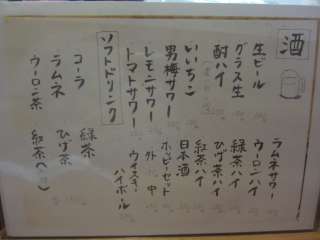 酒
生ビール
グラス生
酎ハイ
いいちこ
男梅サワー
レモンサワー
トマトサワー
ラムネサワー
ウーロンハイ
緑茶ハイ
ひげ茶ハイ
紅茶ハイ
日本酒
ホッピーセット
外 中
ウイスキーハイボール
ソフトドリンク
コーラ
ラムネ
ウーロン茶
緑茶
ひげ茶
紅茶